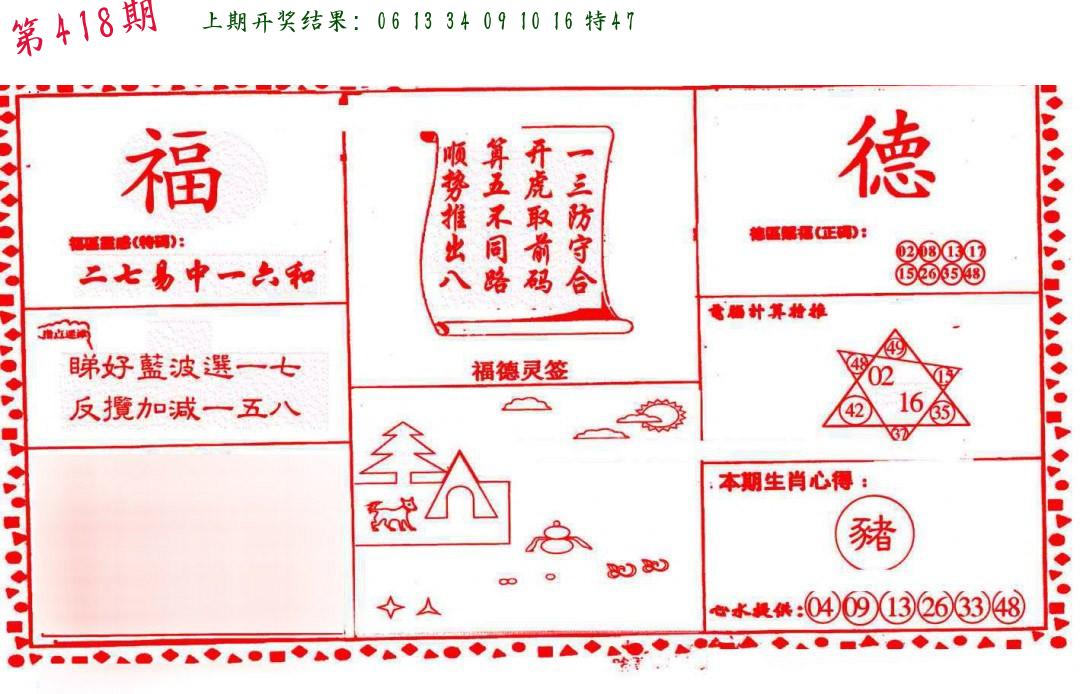 第418期
上期开奖结果: 06 13 34 09 10 16 特47
福
福區靈感(特碼):
二七易中一六和
睇好藍波選一七
反攬加減一五八
一三防守合
开虎取前码
算五不同路
顺势推出八
福德灵签
德
德區賜福(正碼):
02 08 13 17
15 26 35 48
電腦計算特推
49
48 02 15
42 16 35
37
本期生肖心得:
豬
心水提供:04 09 13 26 33 48